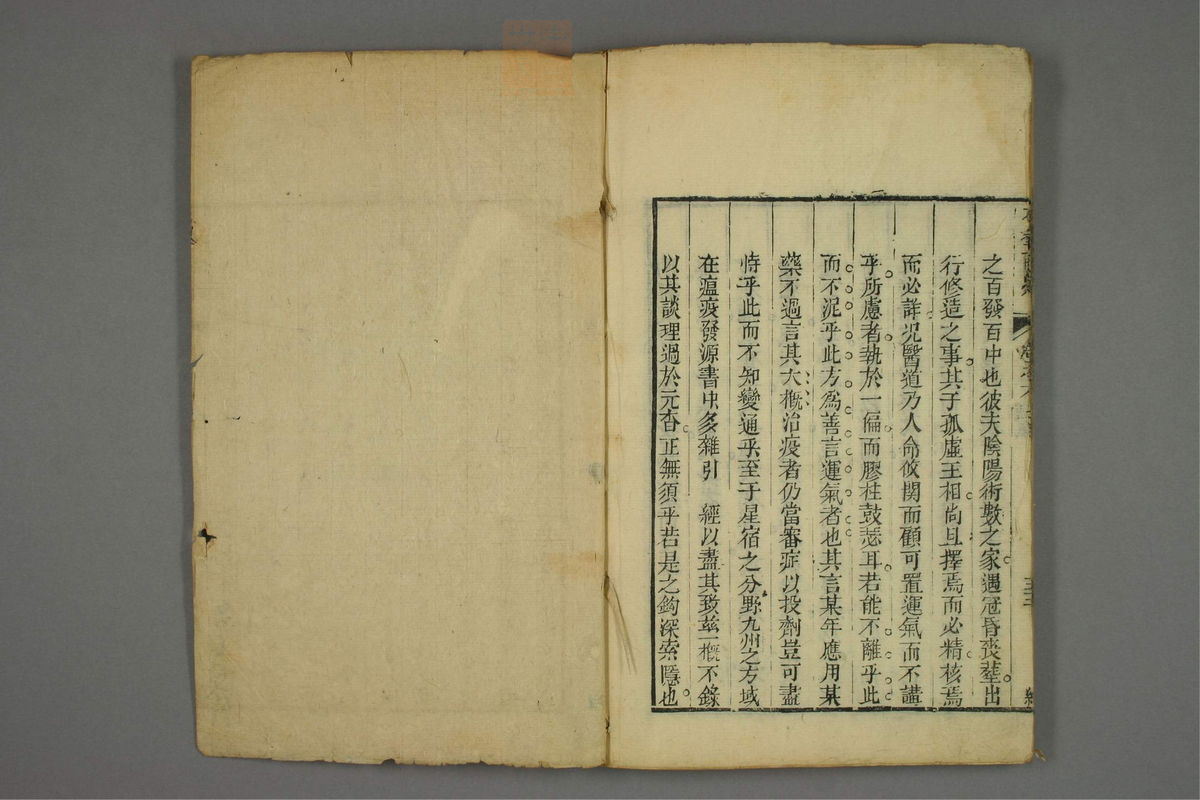 之百發百中也彼夫陰陽術數之家遇冠昏喪葬出
行修造之事其于孤虛王相尙且擇焉而必精核焉
而必詳况醫道乃人命攸関而顧可置運氣而不講
乎所慮者執於一偏而膠柱鼓瑟耳若能不離乎此
而不泥乎此方爲善言運氣者也其言某年應用某
藥不過言其大槪治疫者仍當審症以投劑豈可盡
恃乎此而不知變通乎至于星宿之分野九州之方域
在瘟疫發源書中多雜引　經以盡其致茲一槪不錄
以其談理過於元杳正無須乎若是之鈎深索隱也